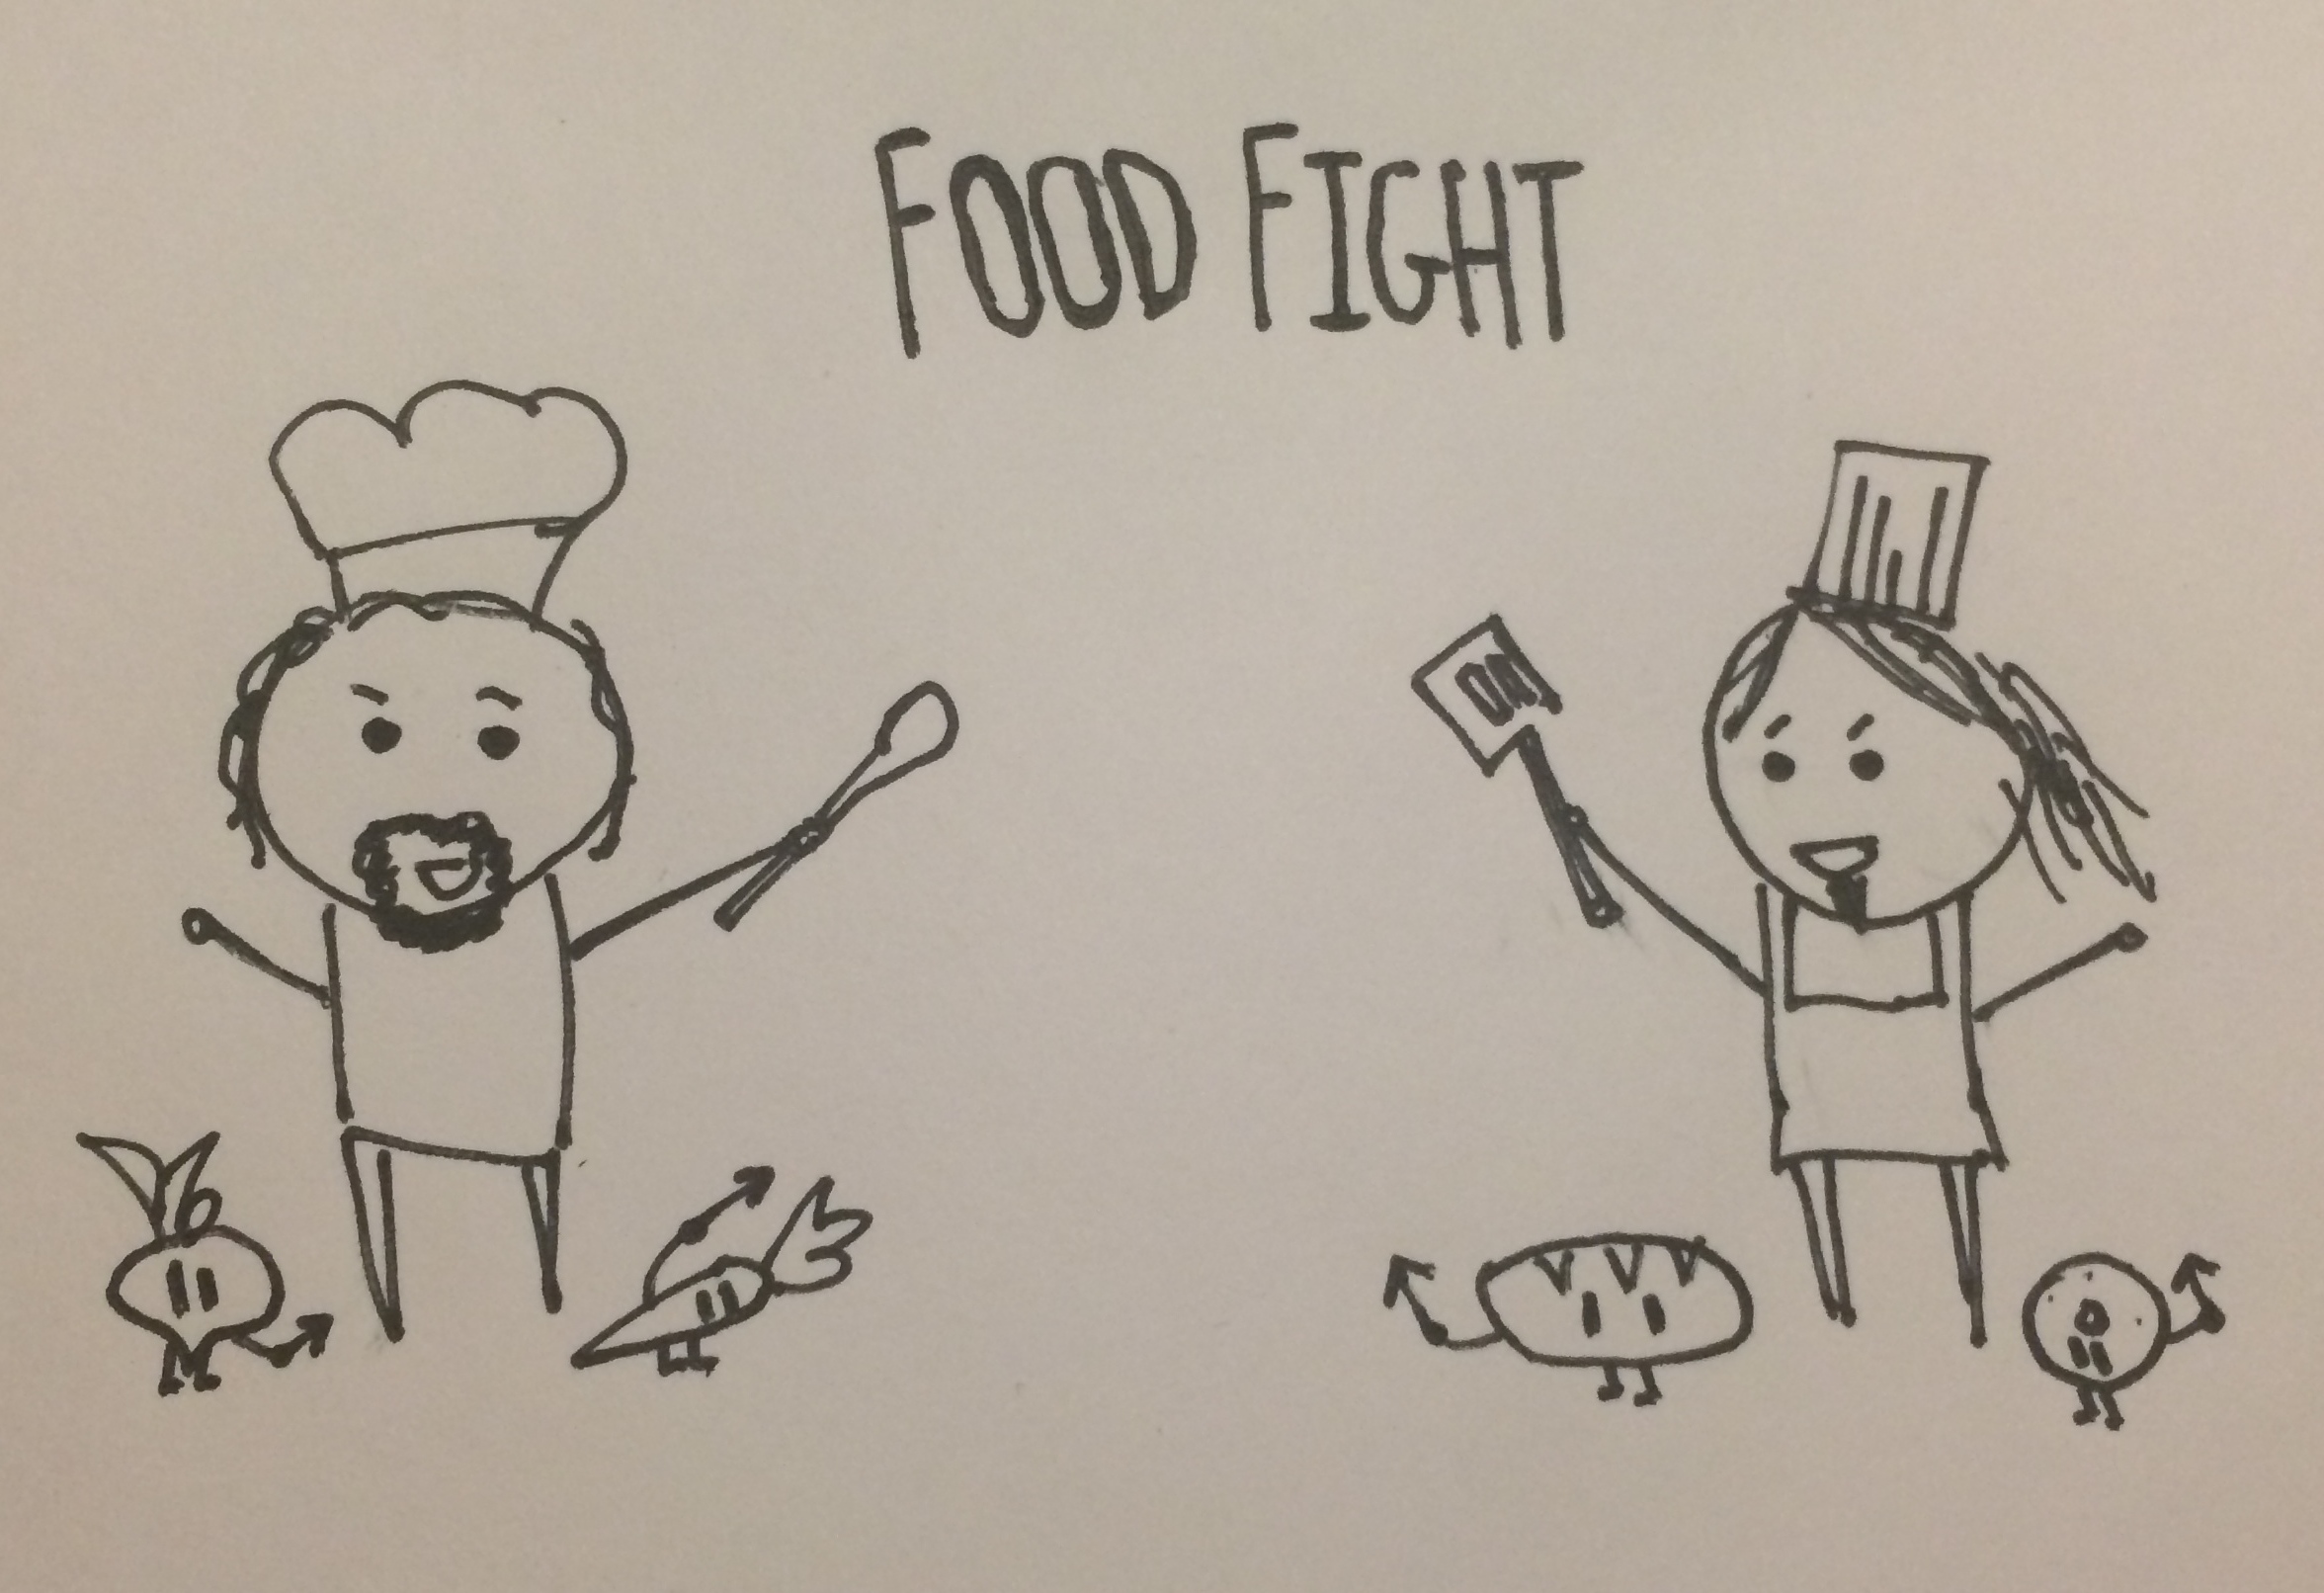 FOOD FIGHT